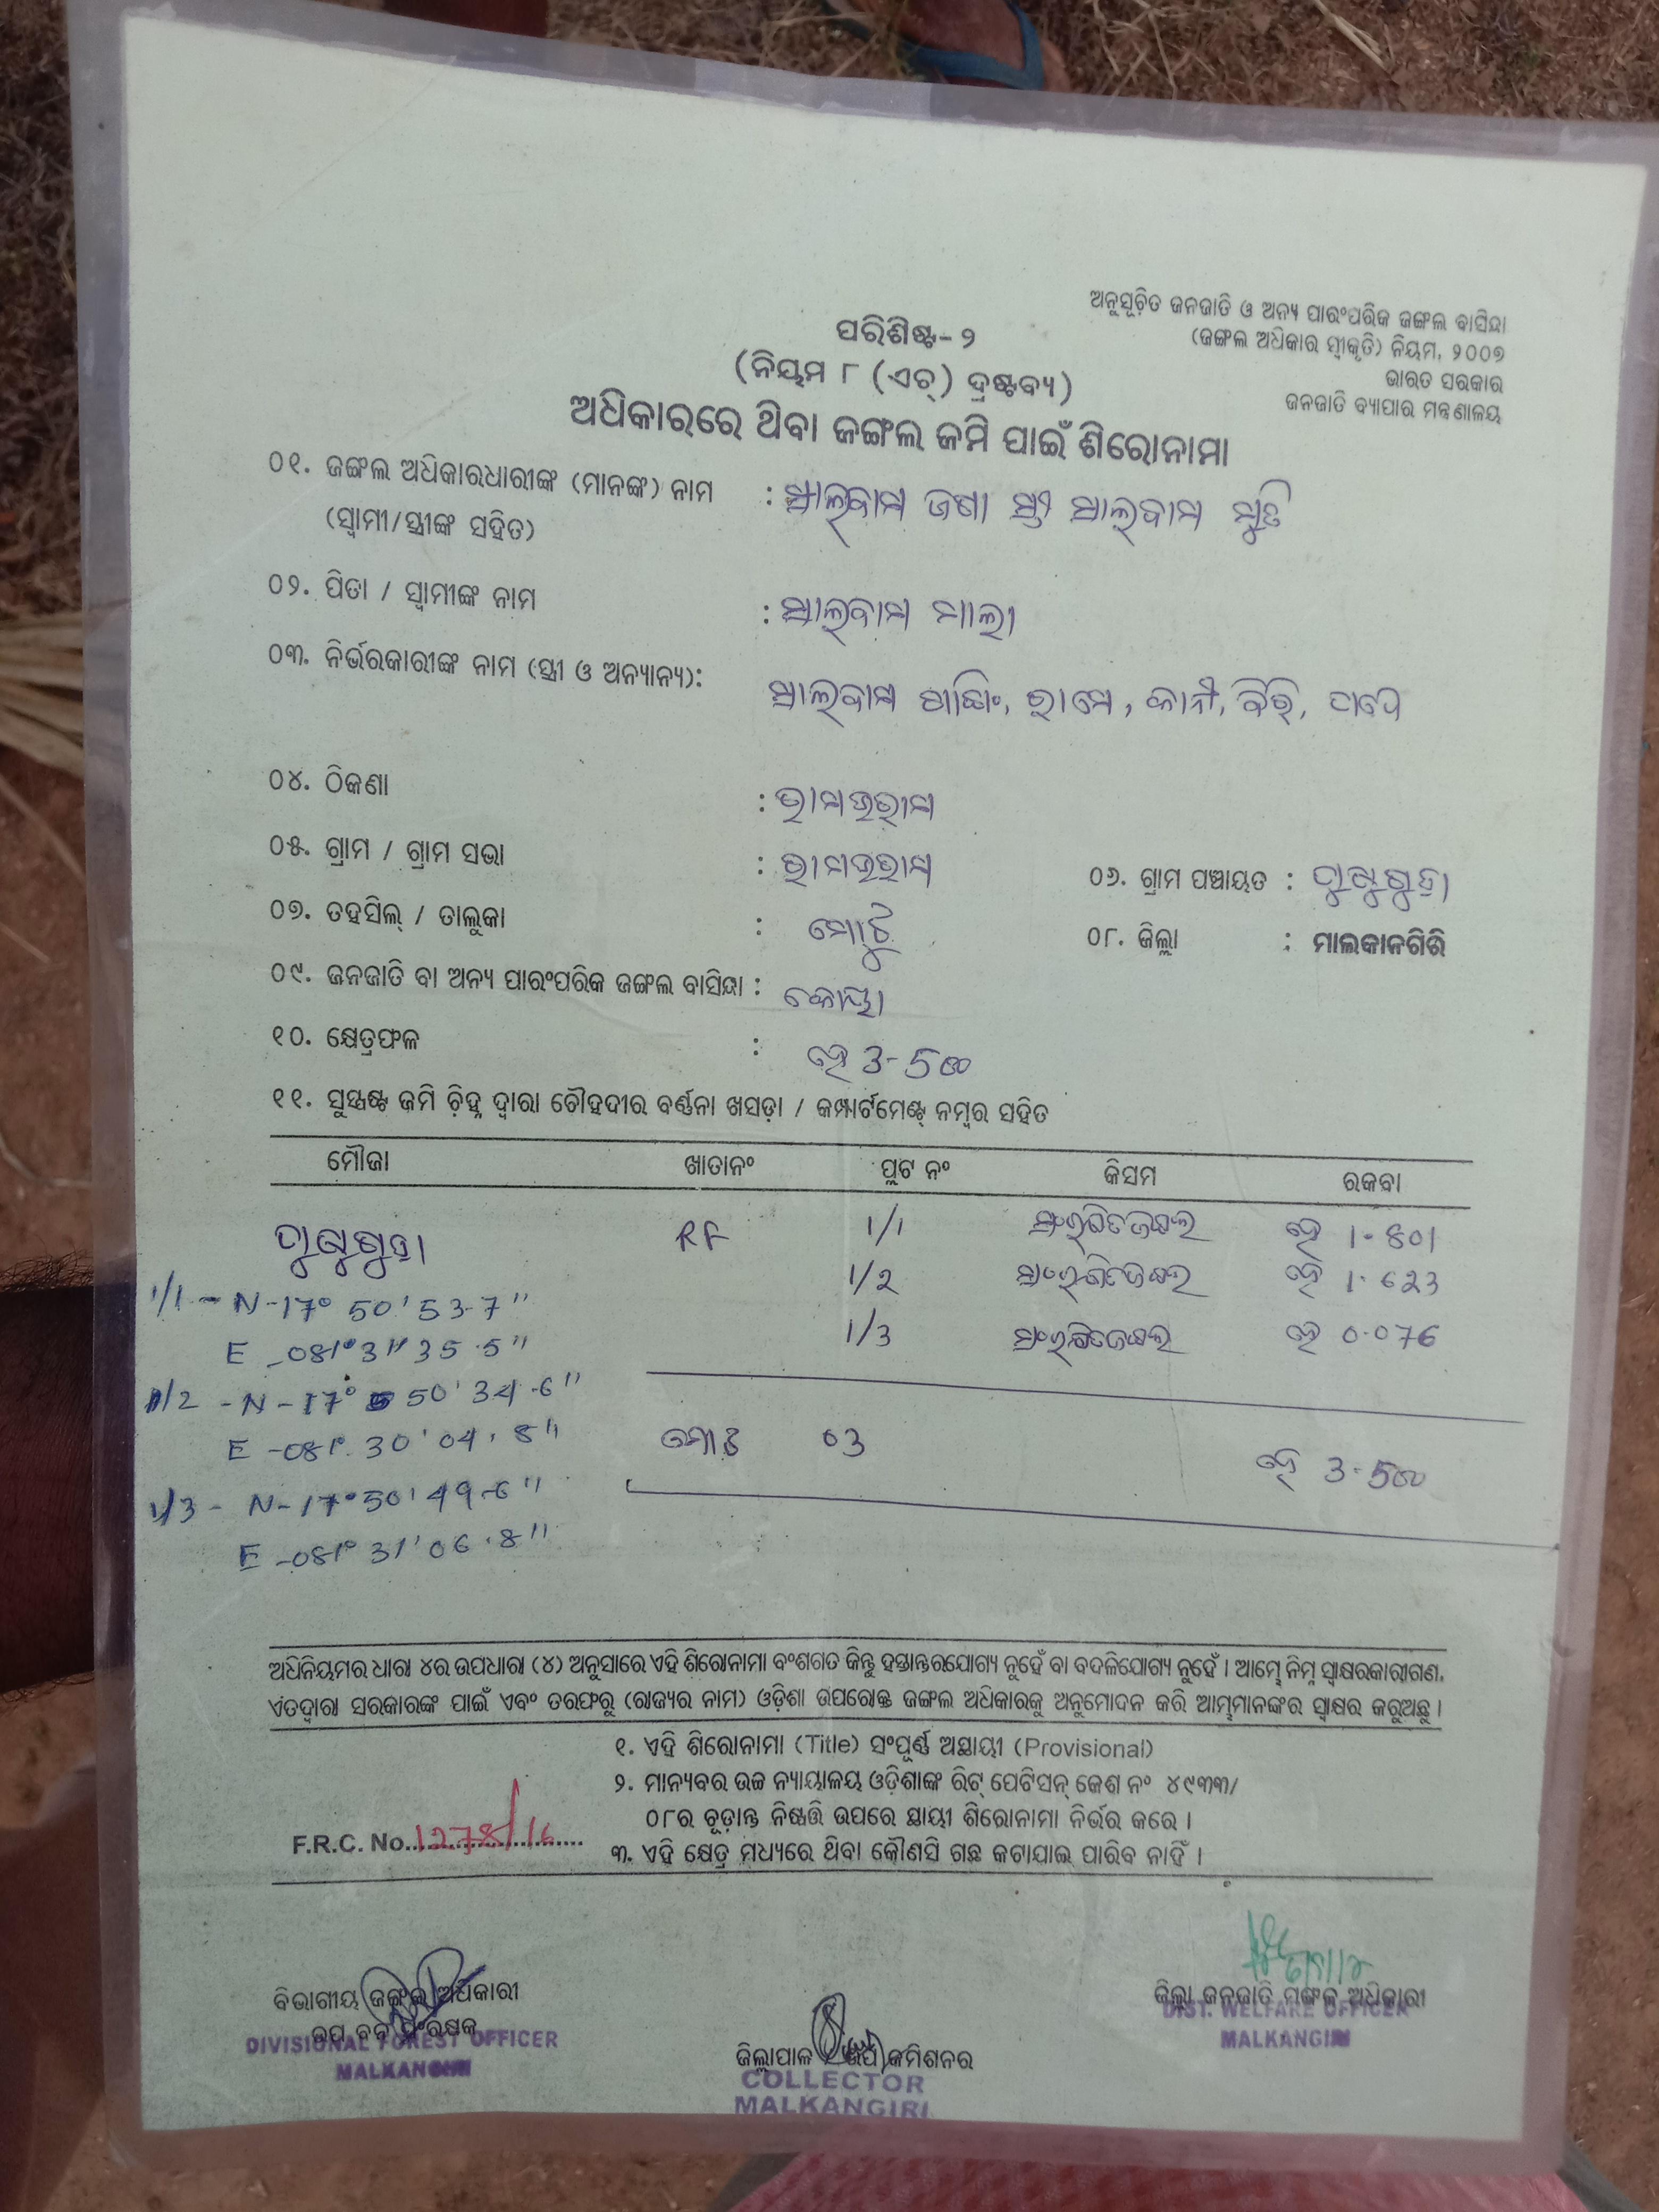 ଅନୁସୂଚିତ ଜନଜାତି ଓ ଅନ୍ୟ ପାରଂପରିକ ଜଙ୍ଗଲ ବାସିନ୍ଦା
(ଜଙ୍ଗଲ ଅଧିକାର ସ୍ୱୀକୃତି) ନିୟମ, ୨୦୦୭
ଭାରତ ସରକାର
ଜନଜାତି ବ୍ୟାପାର ମନ୍ତ୍ରଣାଳୟ
ପରିଶିଷ୍ଟ - ୨
(ନିୟମ ୮ (ଏଚ୍) ଦ୍ରଷ୍ଟବ୍ୟ)
ଅଧିକାରରେ ଥିବା ଜଙ୍ଗଲ ଜମି ପାଇଁ ଶିରୋନାମା
୦୧. ଜଙ୍ଗଲ ଅଧିକାରଧାରୀଙ୍କ (ମାନଙ୍କ) ନାମ :
(ସ୍ୱାମୀ/ସ୍ତ୍ରୀଙ୍କ ସହିତ)
୦୨. ପିତା / ସ୍ୱାମୀଙ୍କ ନାମ :
୦୩. ନିର୍ଭରକାରୀଙ୍କ ନାମ (ସ୍ତ୍ରୀ ଓ ଅନ୍ୟାନ୍ୟ):
୦୪. ଠିକଣା :
୦୫. ଗ୍ରାମ / ଗ୍ରାମ ସଭା :
୦୬. ଗ୍ରାମ ପଞ୍ଚାୟତ :
୦୭. ତହସିଲ୍ / ତାଲୁକା : ମୋଟୁ
୦୮. ଜିଲ୍ଲା : ମାଲକାନଗିରି
୦୯. ଜନଜାତି ବା ଅନ୍ୟ ପାରଂପରିକ ଜଙ୍ଗଲ ବାସିନ୍ଦା : କୋୟା
୧୦. କ୍ଷେତ୍ରଫଳ : ହେ 3-500
୧୧. ସୁସ୍ପଷ୍ଟ ଜମି ଚିହ୍ନ ଦ୍ୱାରା ଚୌହଦୀର ବର୍ଣ୍ଣନା ଖସଡ଼ା / କମ୍ପାର୍ଟମେଣ୍ଟ୍ ନମ୍ବର ସହିତ
ମୌଜା ଖାତାନଂ ପ୍ଲଟ ନଂ କିସମ ରକବା
RF 1/1 ହେ 1.801
1/2 ହେ 1.623
1/3 ହେ 0.076
1/1 - N-17° 50' 53.7"
E -081° 31' 35.5"
1/2 - N-17° 50' 34.6"
E -081° 30' 04.8"
1/3 - N-17° 50' 49.6"
E -081° 31' 06.8"
ମୋଟ 03 ହେ 3-500
ଅଧିନିୟମର ଧାରା ୪ର ଉପଧାରା (୪) ଅନୁସାରେ ଏହି ଶିରୋନାମା ବଂଶଗତ କିନ୍ତୁ ହସ୍ତାନ୍ତରଯୋଗ୍ୟ ନୁହେଁ ବା ବଦଳିଯୋଗ୍ୟ ନୁହେଁ । ଆମ୍ଭେ ନିମ୍ନ ସ୍ୱାକ୍ଷରକାରୀଗଣ,
ଏତଦ୍ୱାରା ସରକାରଙ୍କ ପାଇଁ ଏବଂ ତରଫରୁ (ରାଜ୍ୟର ନାମ) ଓଡ଼ିଶା ଉପରୋକ୍ତ ଜଙ୍ଗଲ ଅଧିକାରକୁ ଅନୁମୋଦନ କରି ଆମ୍ଭମାନଙ୍କର ସ୍ୱାକ୍ଷର କରୁଅଛୁ ।
୧. ଏହି ଶିରୋନାମା (Title) ସଂପୂର୍ଣ୍ଣ ଅସ୍ଥାୟୀ (Provisional)
୨. ମାନ୍ୟବର ଉଚ୍ଚ ନ୍ୟାୟାଳୟ ଓଡ଼ିଶାଙ୍କ ରିଟ୍ ପେଟିସନ୍ କେଶ ନଂ ୪୯୩୩/
୦୮ର ଚୂଡ଼ାନ୍ତ ନିଷ୍ପତ୍ତି ଉପରେ ସ୍ଥାୟୀ ଶିରୋନାମା ନିର୍ଭର କରେ ।
୩. ଏହି କ୍ଷେତ୍ର ମଧ୍ୟରେ ଥିବା କୌଣସି ଗଛ କଟାଯାଇ ପାରିବ ନାହିଁ ।
F.R.C. No.
ବିଭାଗୀୟ ଜଙ୍ଗଲ ଅଧିକାରୀ
ଉପ ବନ ସଂରକ୍ଷକ
DIVISIONAL FOREST OFFICER
MALKANGIRI
ଜିଲ୍ଲାପାଳ / ଉପ କମିଶନର
COLLECTOR
MALKANGIRI
ଜିଲ୍ଲା ଜନଜାତି ମଙ୍ଗଳ ଅଧିକାରୀ
DIST. WELFARE OFFICER
MALKANGIRI